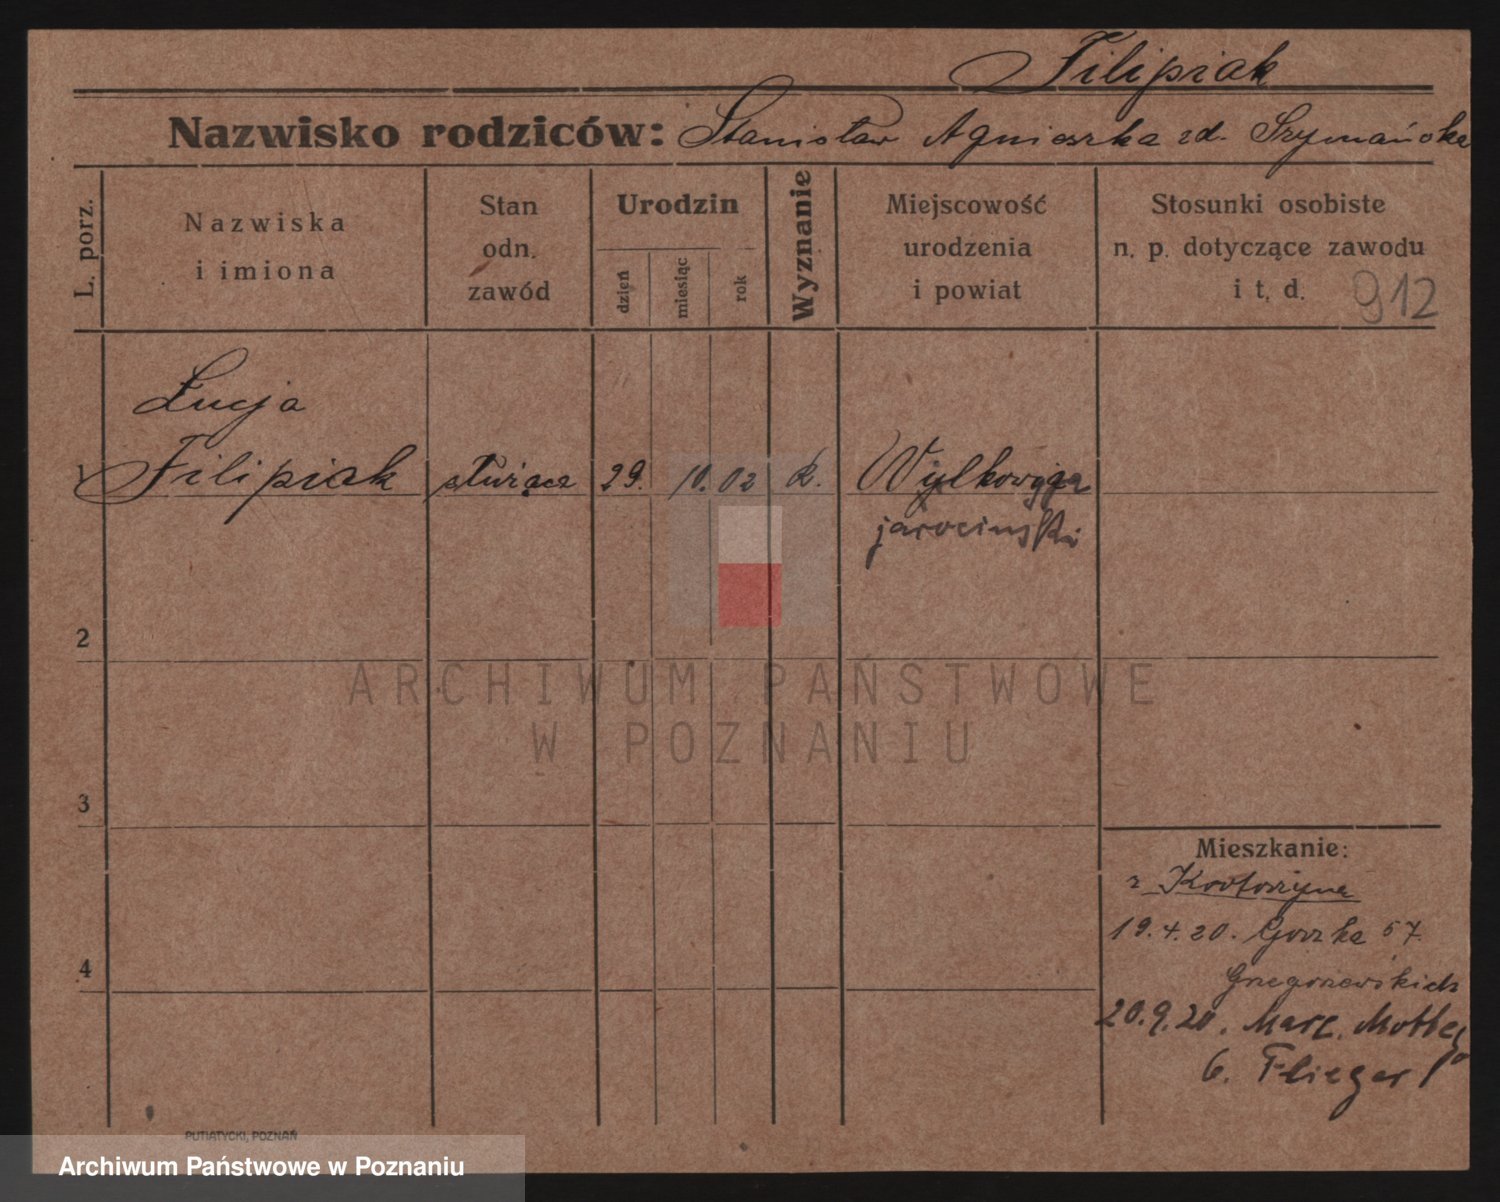 Filipiak
Nazwisko rodziców: Stanisław Agnieszka zd. Szymańska
L. porz.
Nazwiska
i imiona
Stan
odn.
zawód
Urodzin
dzień
miesiąc
rok
Wyznanie
Miejscowość
urodzenia
i powiat
Stosunki osobiste
n. p. dotyczące zawodu
i t. d.
912
Łucja
1 Filipiak służąca 29. 10. 02 k. Wylkowyja
jarociński
2
3
4
ARCHIWUM PAŃSTWOWE
W POZNANIU
Mieszkanie:
z Krotoszyna
19.4.20. Gorzka 57
Grzegorzewskich
20.9.20. Marc. Mottego
6. Flieger
PUTIATYCKI, POZNAŃ
Archiwum Państwowe w Poznaniu